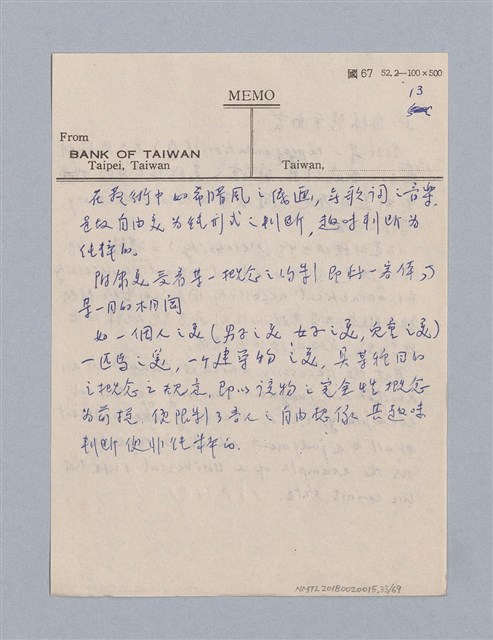 國 67 52.2—100×500
13
MEMO
From
BANK OF TAIWAN
Taipei, Taiwan
Taiwan,
在藝術中如希臘風之線画,無歌詞之音樂
是故自由美為純形式之判断,趣味判断為
純粹的。
附庸美受着某一概念之约制,即対一旁係,乃
某一目的相関
如一個人之美(男子之美,女子之美,兒童之美)
一匹馬之美,一个建築物之美,具某種目的
之概念之規定,即以該物之完全性概念
為前提,便限制了吾人之自由想像,其趣味
判断便非純粹的。
NMTL20180020015,33/69